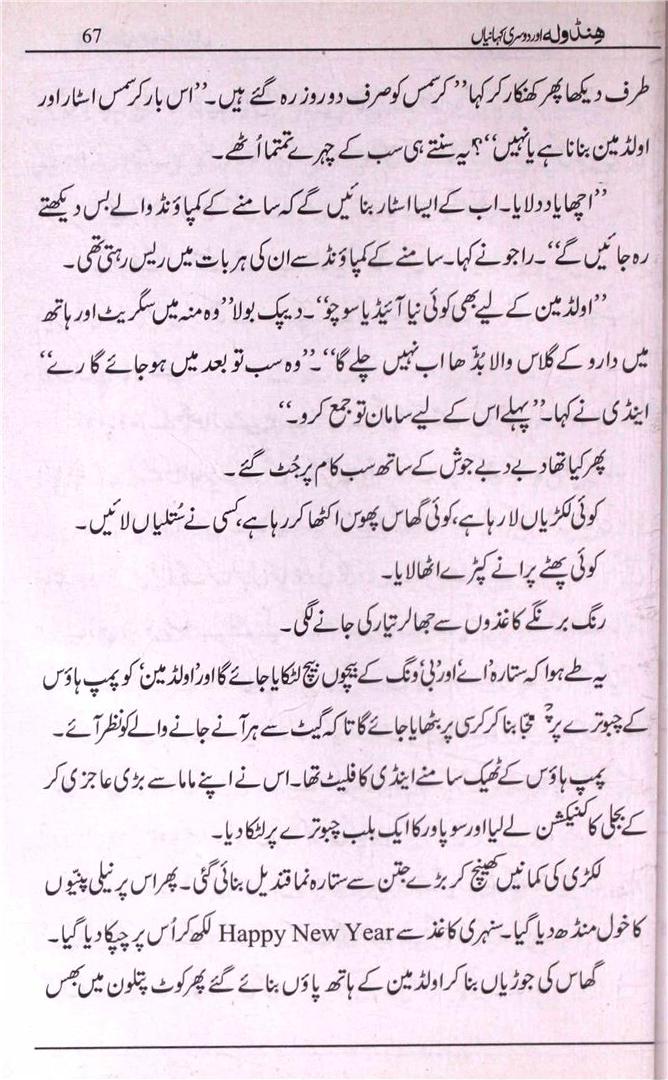 ہنڈولہ اور دوسری کہانیاں 67
طرف دیکھا پھر کھنکار کر کہا ’’کرسمس کو صرف دو روز رہ گئے ہیں۔‘‘ اس بار کرسمس اسٹار اور
اولڈ مین بنانا ہے یا نہیں‘‘؟ یہ سنتے ہی سب کے چہرے تمتما اُٹھے۔
’’اچھا یاد دلایا۔ اب کے ایسا اسٹار بنائیں گے کہ سامنے کے کمپاؤنڈ والے بس دیکھتے
رہ جائیں گے‘‘۔ راجو نے کہا۔ سامنے کے کمپاؤنڈ سے ان کی ہر بات میں ریس رہتی تھی۔
’’اولڈ مین کے لیے بھی کوئی نیا آئیڈیا سوچو‘‘۔ دیپک بولا ’’وہ منہ میں سگریٹ اور ہاتھ
میں دارو کے گلاس والا بڈّھا اب نہیں چلے گا‘‘۔ ’’وہ سب تو بعد میں ہو جائے گا رے‘‘
اینڈی نے کہا۔ ’’پہلے اس کے لیے سامان تو جمع کرو۔‘‘
پھر کیا تھا دبے دبے جوش کے ساتھ سب کام پر جُٹ گئے۔
کوئی لکڑیاں لا رہا ہے، کوئی گھاس پھوس اکٹھا کر رہا ہے، کسی نے سُتلیاں لائیں۔
کوئی پھٹے پرانے کپڑے اٹھا لایا۔
رنگ برنگے کاغذوں سے جھالر تیار کی جانے لگی۔
یہ طے ہوا کہ ستارہ ’اے‘ اور ’بی‘ ونگ کے بیچوں بیچ لٹکایا جائے گا اور ’اولڈ مین‘ کو پمپ ہاؤس
کے چبوترے پر مچا بنا کر کرسی پر بٹھایا جائے گا تا کہ گیٹ سے ہر آنے جانے والے کو نظر آئے۔
پمپ ہاؤس کے ٹھیک سامنے اینڈی کا فلیٹ تھا۔ اس نے اپنے ماما سے بڑی عاجزی کر
کے بجلی کا کنیکشن لے لیا اور سو پاور کا ایک بلب چبوترے پر لٹکا دیا۔
لکڑی کی کمانیں کھینچ کر بڑے جتن سے ستارہ نما قندیل بنائی گئی۔ پھر اس پر نیلی پنّیوں
کا خول منڈھ دیا گیا۔ سنہری کاغذ سے Happy New Year لکھ کر اُس پر چپکا دیا گیا۔
گھاس کی جوڑیاں بنا کر اولڈ مین کے ہاتھ پاؤں بنائے گئے پھر کوٹ پتلون میں بھس